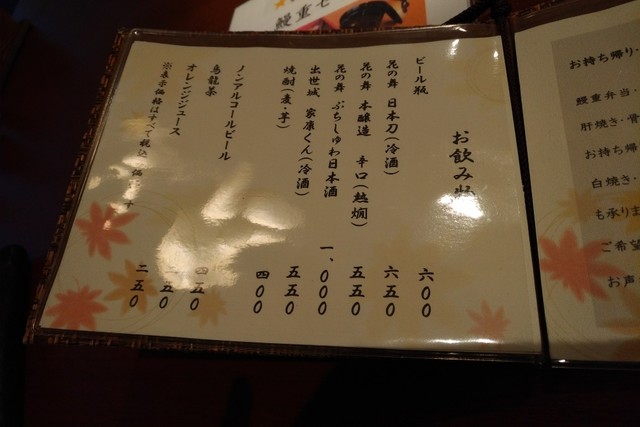 鰻重セ
お飲み物
ビール瓶 六〇〇
花の舞 日本刀(冷酒) 六五〇
花の舞 本醸造 辛口(熱燗) 五五〇
花の舞 ぷちしゅわ日本酒 一、〇〇〇
出世城 家康くん(冷酒) 五五〇
焼酎(麦・芋) 四〇〇
ノンアルコールビール 四五〇
烏龍茶 二五〇
オレンジジュース 二五〇
※表示価格はすべて税込み価格です
お持ち帰り・
鰻重弁当・
肝焼き・骨
お持ち帰
白焼き・
も承りま
ご希望
お声